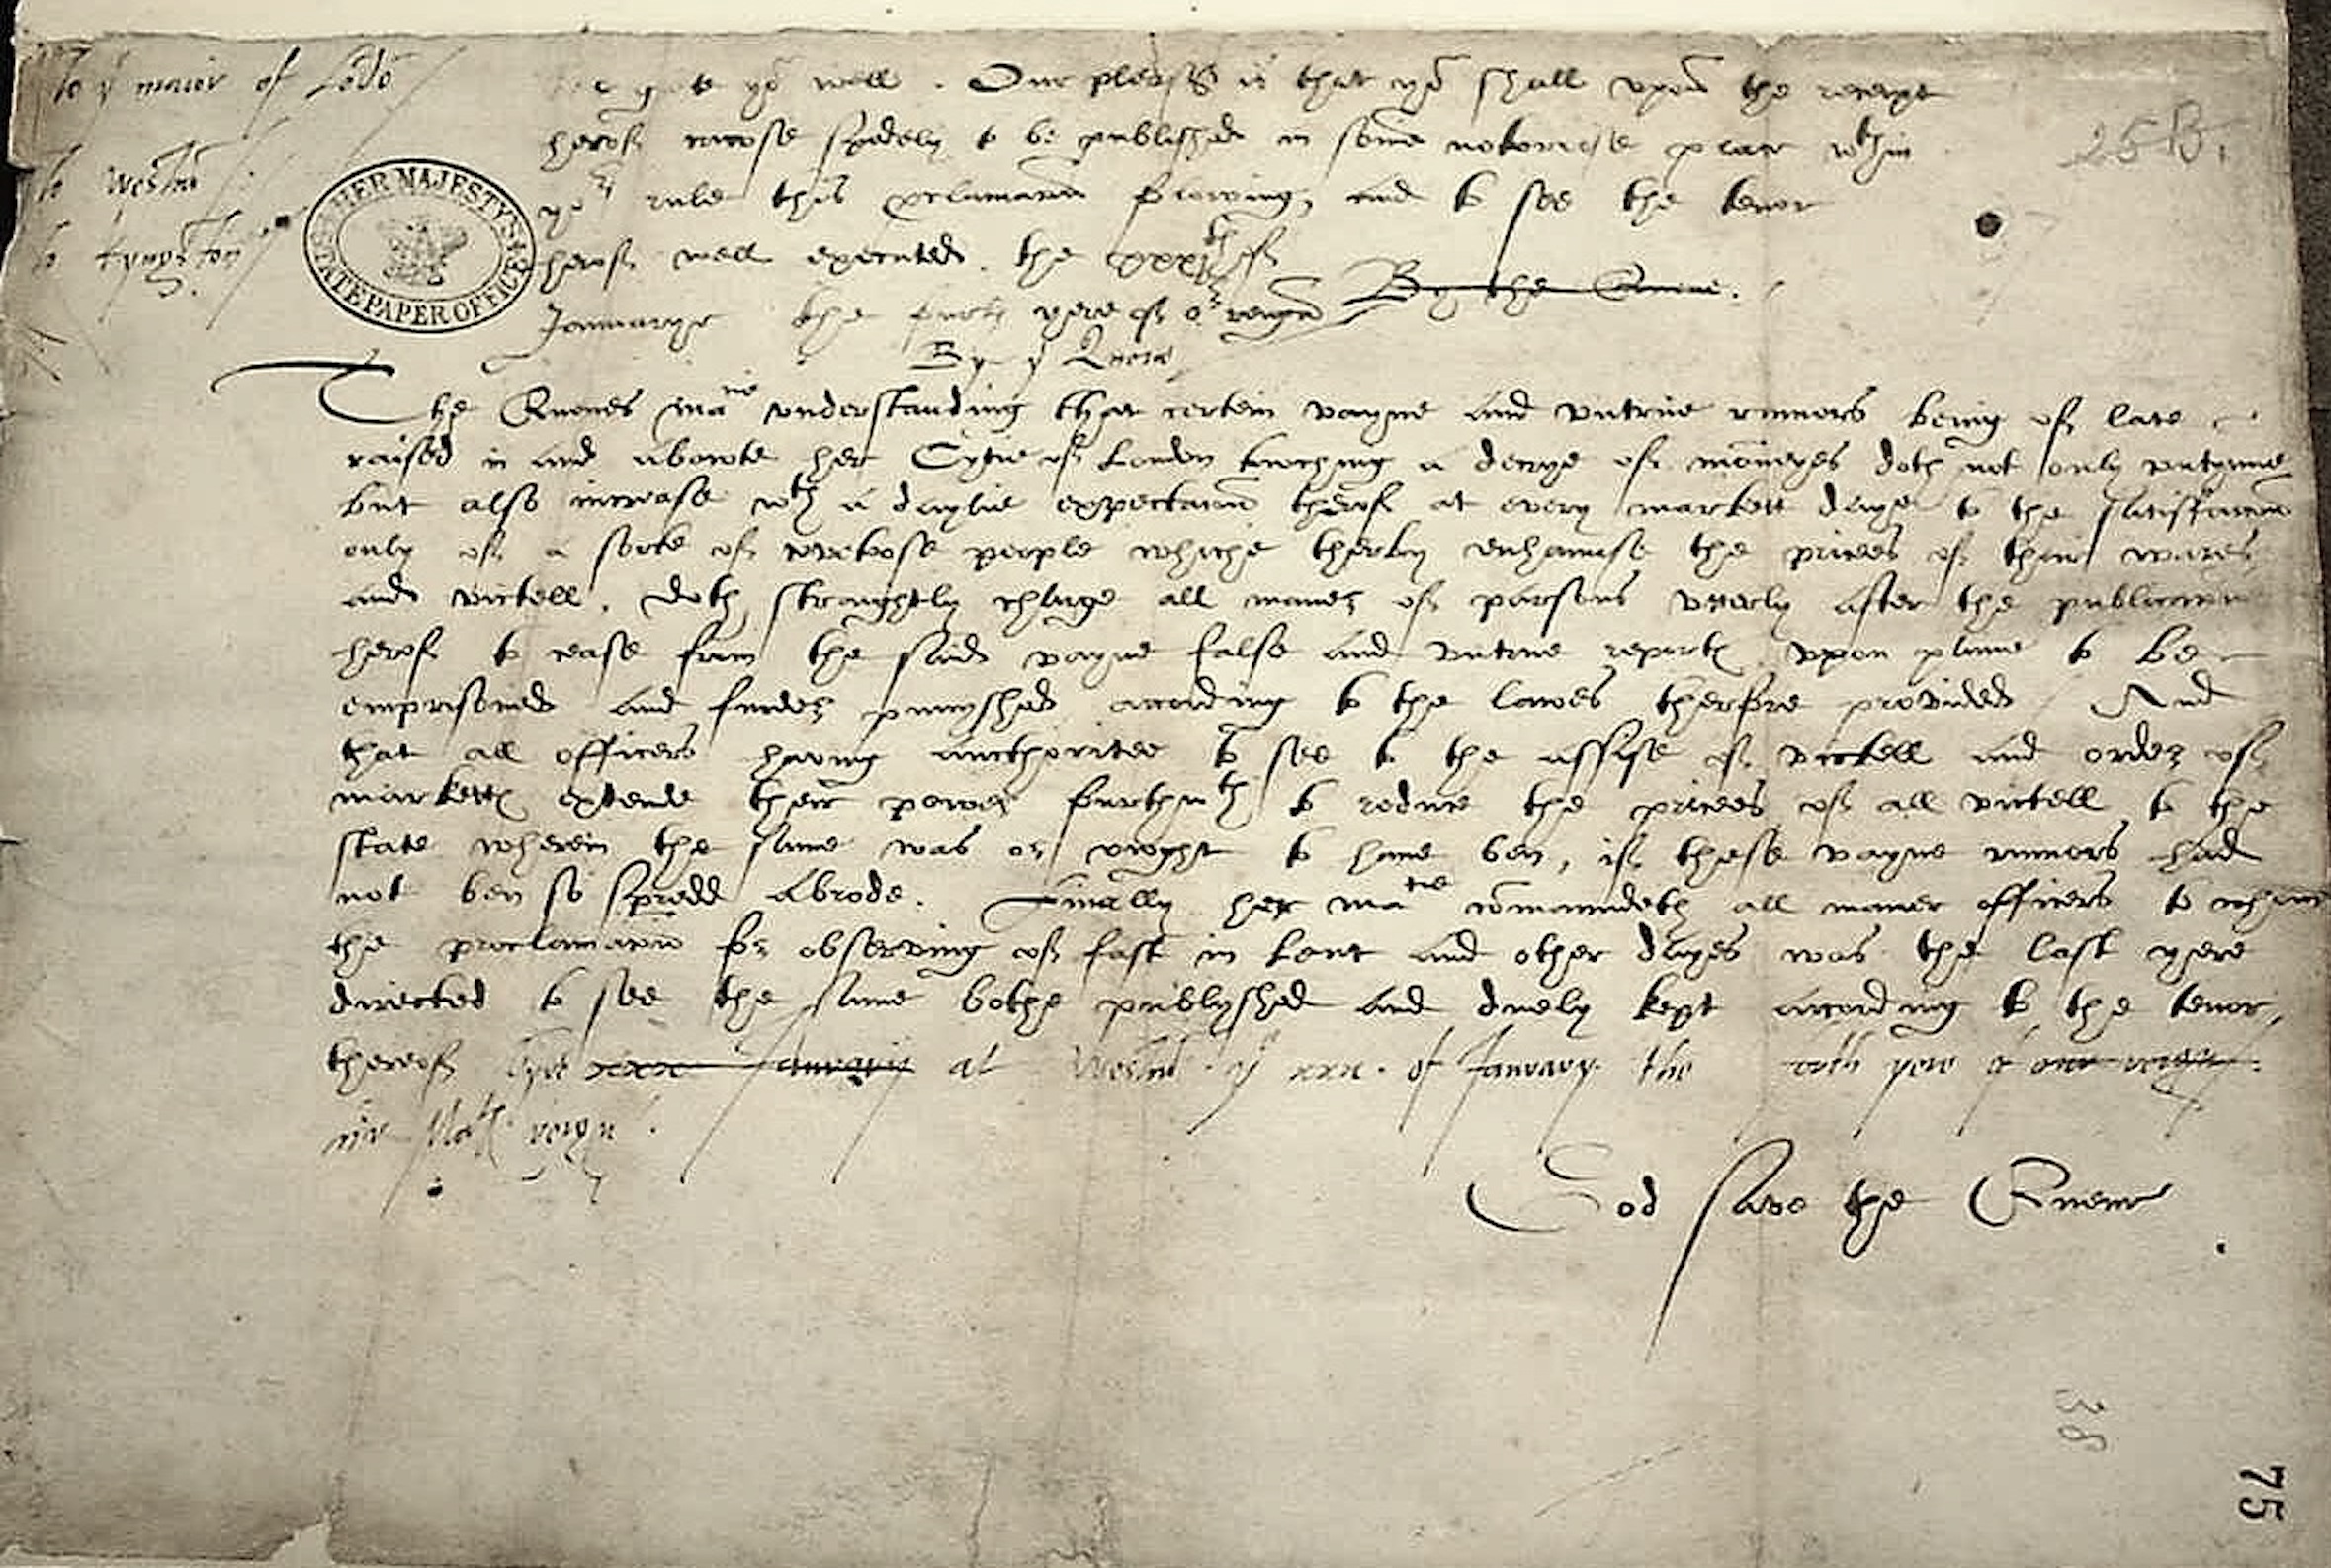 To yͤ maior of Lōdō
to Westm̄
to kyngston
grete yoͧ well. Our pleasͬ is that yoͧ shall vpon the receipt
herof cause spedely to be published in some notoriouse place wᵗʰin
yoʳ rule this proclamac̄on folowing, and to see the tenor
herof well executed. the xxxᵗʰ of
Januarye the yere of oʳ reign By the Quene.
By yͤ Quene
The Quenes maᵗⁱᵉ vnderstanding that certein vayne and vntrue rumors being of late
raised in and aboute her Cytie of London touching a decrye of moneyes doth not only contynue
but also increase wᵗʰ a daylie expectac̄on therof at every markett daye to the satisfacc̄on
only of a sorte of people whiche therby enhaunse the prices of their wares
and victell. doth straightly charge all maner of parsons vtterly after the publicac̄on
herof to cease from the said vayne false and vntrue reportes vpon paine to be
emprisoned and furder punyshed according to the lawes therfore provided / And
that all officers having aucthoritee to see to the assise of victell and order of
markettes extende their power furthwᵗʰ to reduce the prices of all victell to the
state wherein the same was or ought to haue ben, if these vayne rumors had
not ben so spredd abrode. Finally her maᵗⁱᵉ com̄aundeth all maner officers to whom
the proclamac̄on for observing of fast in Lent and other dayes was the last yere
directed to see the same bothe publyshed and duely kept according to the tenor
therof xxx January at Westm̄ yͤ xxx. of January. the yere of our reign
Maᵗˢ reign.
God save the Quene
HER MAJESTY'S STATE PAPER OFFICE
38
75